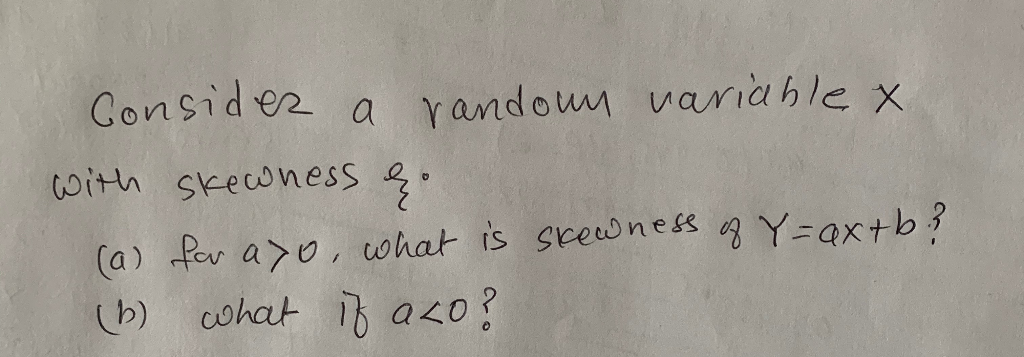 Consider a random variable X
with skewness ξ.
(a) for a>0, what is skewness of Y=ax+b?
(b) what if a<0?